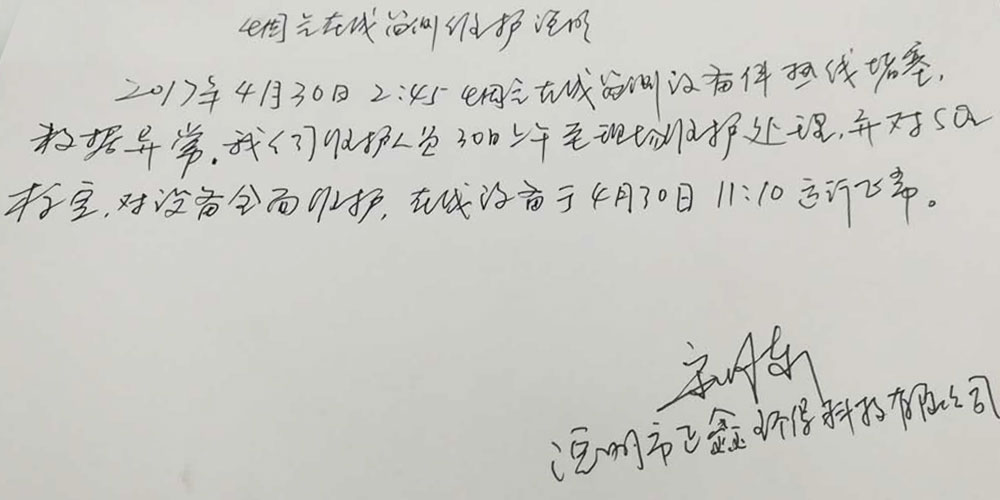 烟气在线监测维护说明
2017年4月30日 2:45 烟气在线监测设备伴热线堵塞,
数据异常。我们维护人员30日上午至现场维护处理,并对SO2
标定,对设备全面维护,在线设备于4月30日 11:10运行正常。
昆明市正鑫环保科技有限公司